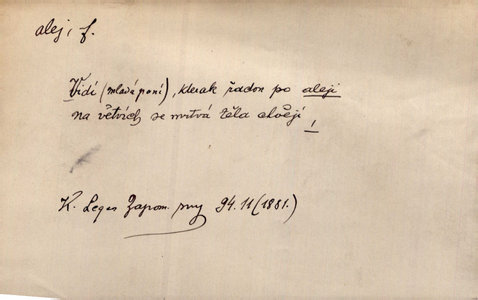 alej, f.
Vidí (mladá paní), kterak řadou po aleji
na větvích se mrtvá těla chvějí!
K. Leger Zapom. 94.11 (1881.)